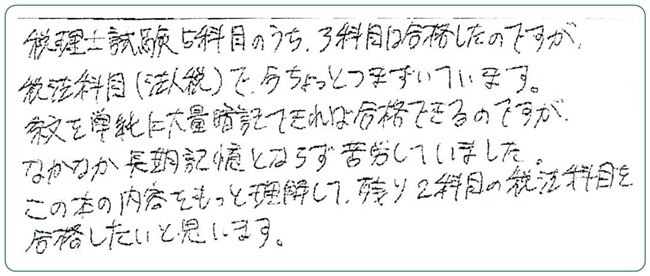 税理士試験5科目のうち、3科目は合格したのですが、
税法科目(法人税)で、今ちょっとつまずいています。
条文を単純に大量暗記できれば合格できるのですが、
なかなか長期記憶とならず苦労していました。
この本の内容をもっと理解して、残り2科目の税法科目を
合格したいと思います。